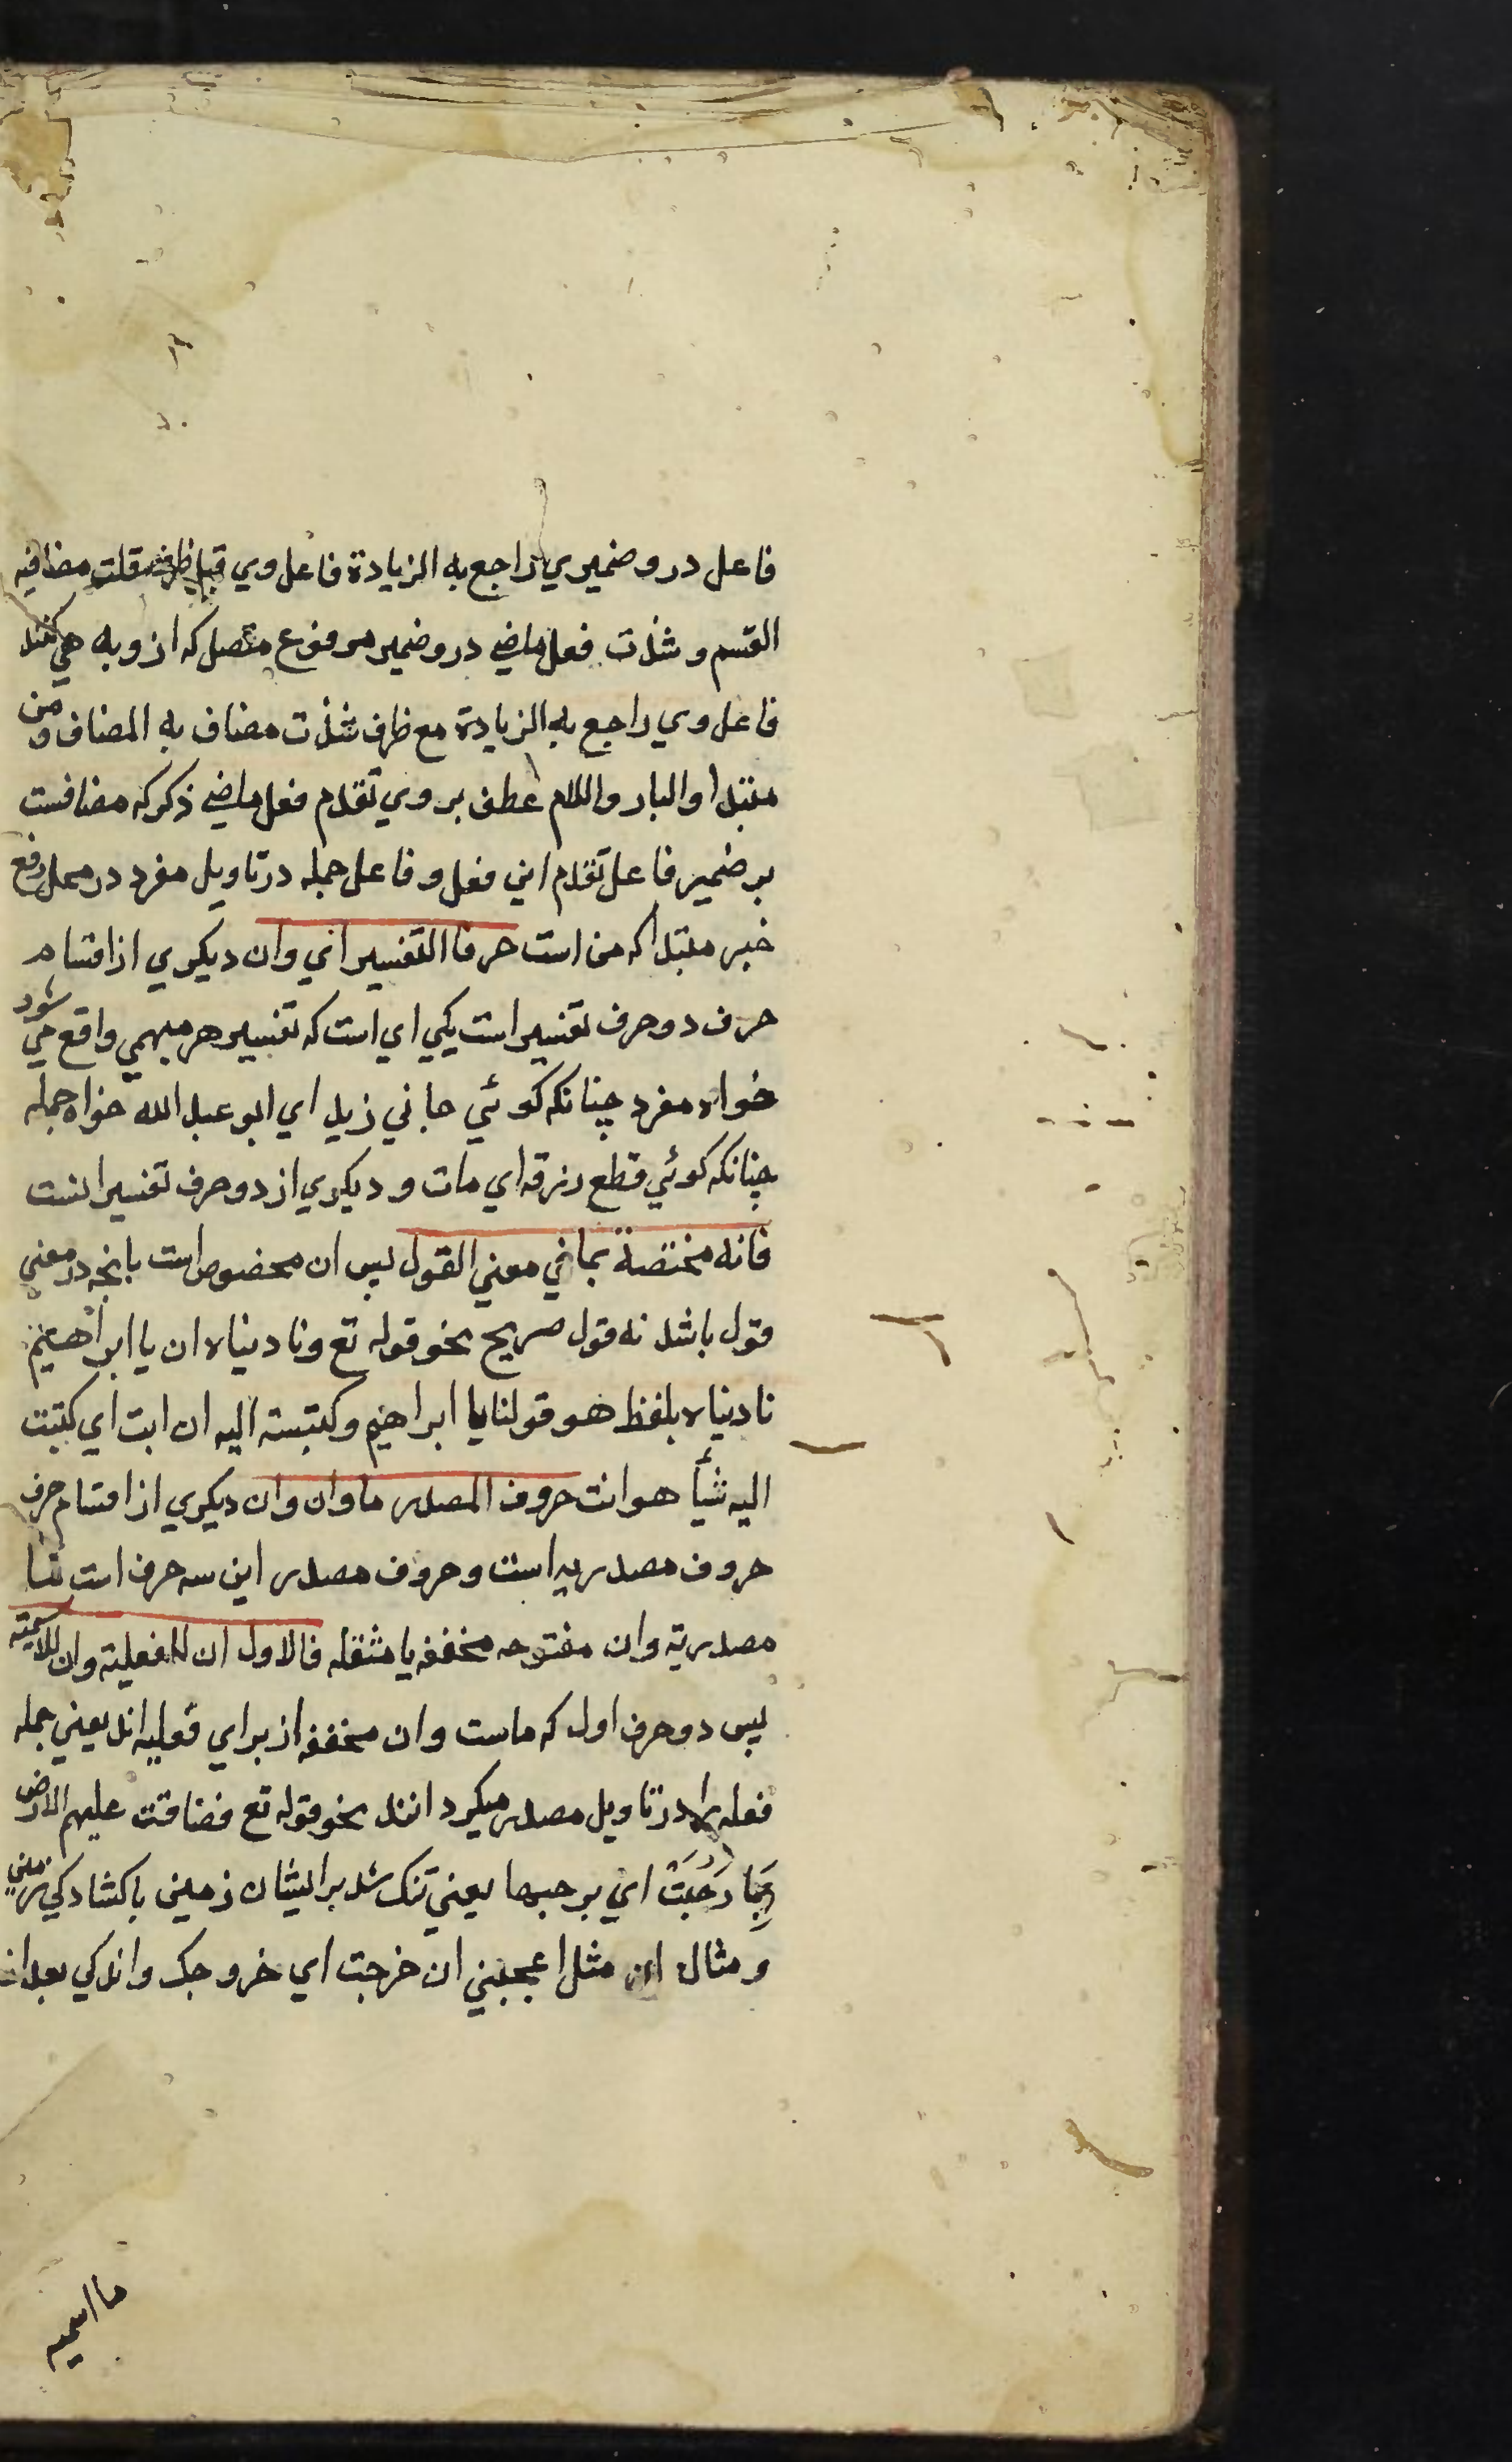 فاعل درو ضميري راجع به الزيادة فاعل وي قبل ظرف قلت مضافيه
القسم و شذت فعل ماضي درو ضمير مرفوع متصل كه ازو به هي كنند
فاعل وي راجع به الزيادة مع ظرف شذت مضاف به المضاف و من
مبتدا والبار واللام عطف بر وي تقدم فعل ماضي ذكر كه مضافست
بر ضمير فاعل تقدم اين فعل و فاعل جمله در تاويل مفرد در محل رفع
خبر مبتدا كه من است حرفا التفسير اي وان ديكري از اقسام
حرف دو حرف تفسير است يكي اي است كه تفسير هر مبهمي واقع مي شود
خواه مفرد چنانكه كوئي جاني زيد اي ابو عبد الله خواه جمله
چنانكه كوئي قطع رزقه اي مات و ديكري از دو حرف تفسير انست
فانه مختصة بما في معني القول پس ان مخصوص است بانچه در معني
قول باشد نه قول صريح نحو قوله تع و ناديناه ان يا ابراهيم
ناديناه بلفظ هو قولنا يا ابراهيم و كتبت اليه ان ايت اي كتبت
اليه شيأ هو انت حروف المصدر ما وان وان ديكري از اقسام حرف
حروف مصدريه است و حروف مصدر اين سه حرف است
مصدرية وان مفتوحه مخففه يا مثقله فالاول ان للفعلية وان للاسمية
پس دو حرف اول كه ماست وان مخففه از براي فعليه اند يعني جمله
فعله را در تاويل مصدر ميكردانند نحو قوله تع فضاقت عليهم الارض
بِمَا رَحُبَتْ اي برحبها يعني تنك شد بر ايشان زمين با كشادكي زمين
و مثال ان مثل اعجبني ان خرجت اي خروجك واندكي بعد ان
ما اسميه